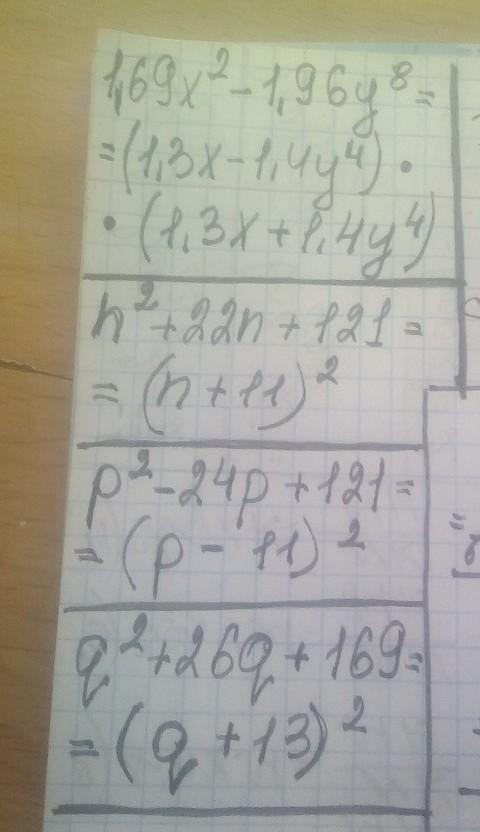 1,69x² - 1,96y⁸ =
= (1,3x - 1,4y⁴) •
• (1,3x + 1,4y⁴)
n² + 22n + 121 =
= (n + 11)²
p² - 24p + 121 =
= (p - 11)²
q² + 26q + 169 =
= (q + 13)²